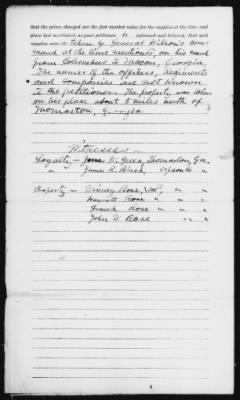 that the prices charged are the fair market value for the supplies at the time and
place last mentioned, as your petitioner is informed and believes; that said
supplies were taken by General Wilson's com-
mand at the time mentioned, on his march
from Columbus to Macon, Georgia.
The names of the officers, regiments
and Companies are not known
to the petitioner. The property was taken
on his place about 5 miles north of
Thomaston, Georgia
Witnesses -
Loyalty - James W. Green, Thomaston, Ga.,
" James R. Black, "
Property - Winney Rose, " "
Harriett Rose " "
Frank Rose " "
John W Rose " "